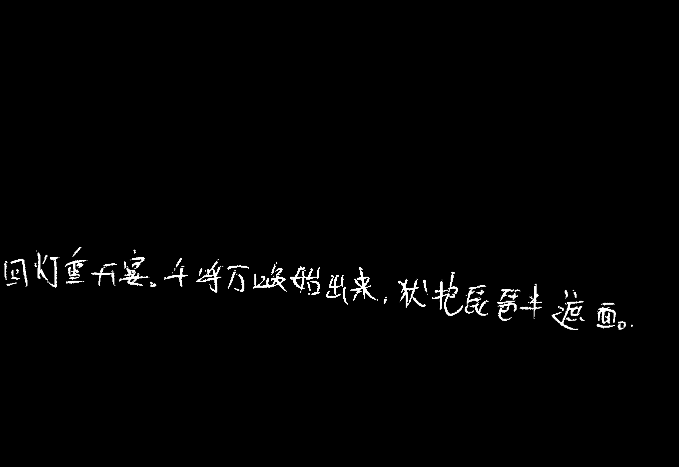 回灯重开宴。千呼万唤始出来，犹抱琵琶半遮面。